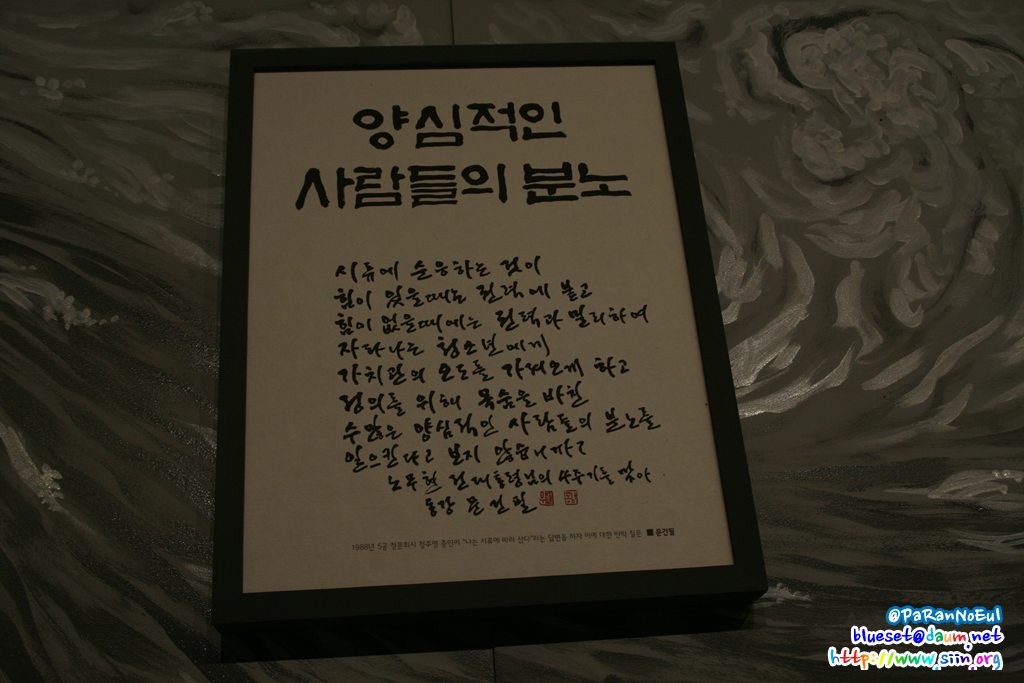 양심적인
사람들의 분노
시류에 순응하는 것이
힘이 있을때는 권력에 붙고
힘이 없을때에는 권력과 멀리하여
자라나는 청소년에게
가치관의 오도를 가져오게 하고
정의를 위해 목숨을 바친
수많은 양심적인 사람들의 분노를
일으킨다고 보지 않습니까?
노무현 전 대통령님의 4주기를 맞아
문건필
1988년 5공 청문회시 정주영 증인이 "나는 시류에 따라 산다"라는 답변을 하자 이에 대한 반박 질문 ■ 문건필
@PaRanNoEul
blueset@daum.net
http://www.siin.org